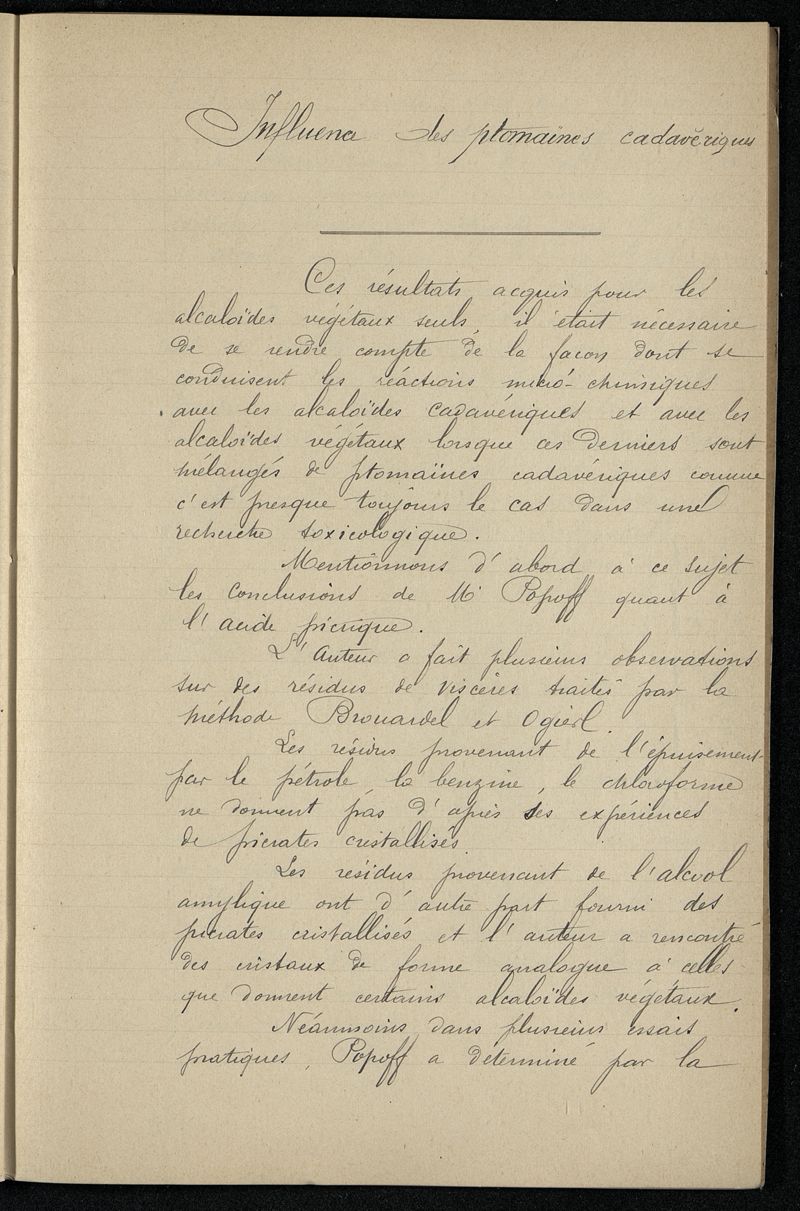 Influence des ptomaines cadavériques
Ces résultats acquis pour les
alcaloïdes végétaux seuls, il était nécessaire
de se rendre compte de la façon dont se
conduisent les réactions micro-chimiques
avec les alcaloïdes cadavériques et avec les
alcaloïdes végétaux lorsque ces derniers sont
mélangés de ptomaïnes cadavériques comme
c'est presque toujours le cas dans une
recherche toxicologique.
Mentionnons d'abord à ce sujet
les conclusions de Mr Popoff quant à
l'acide picrique.
L'Auteur a fait plusieurs observations
sur des résidus de viscères traités par la
méthode Brouardel et Ogierl.
Les résidus provenant de l'épuisement
par le pétrole, la benzine, le chloroforme
ne donnent pas d'après ses expériences
de picrates cristallisés.
Les résidus provenant de l'alcool
amylique ont d'autre part fourni des
picrates cristallisés et l'auteur a rencontré
des cristaux de forme analogue à celles
que donnent certains alcaloïdes végétaux.
Néanmoins dans plusieurs essais
pratiques, Popoff a déterminé par la